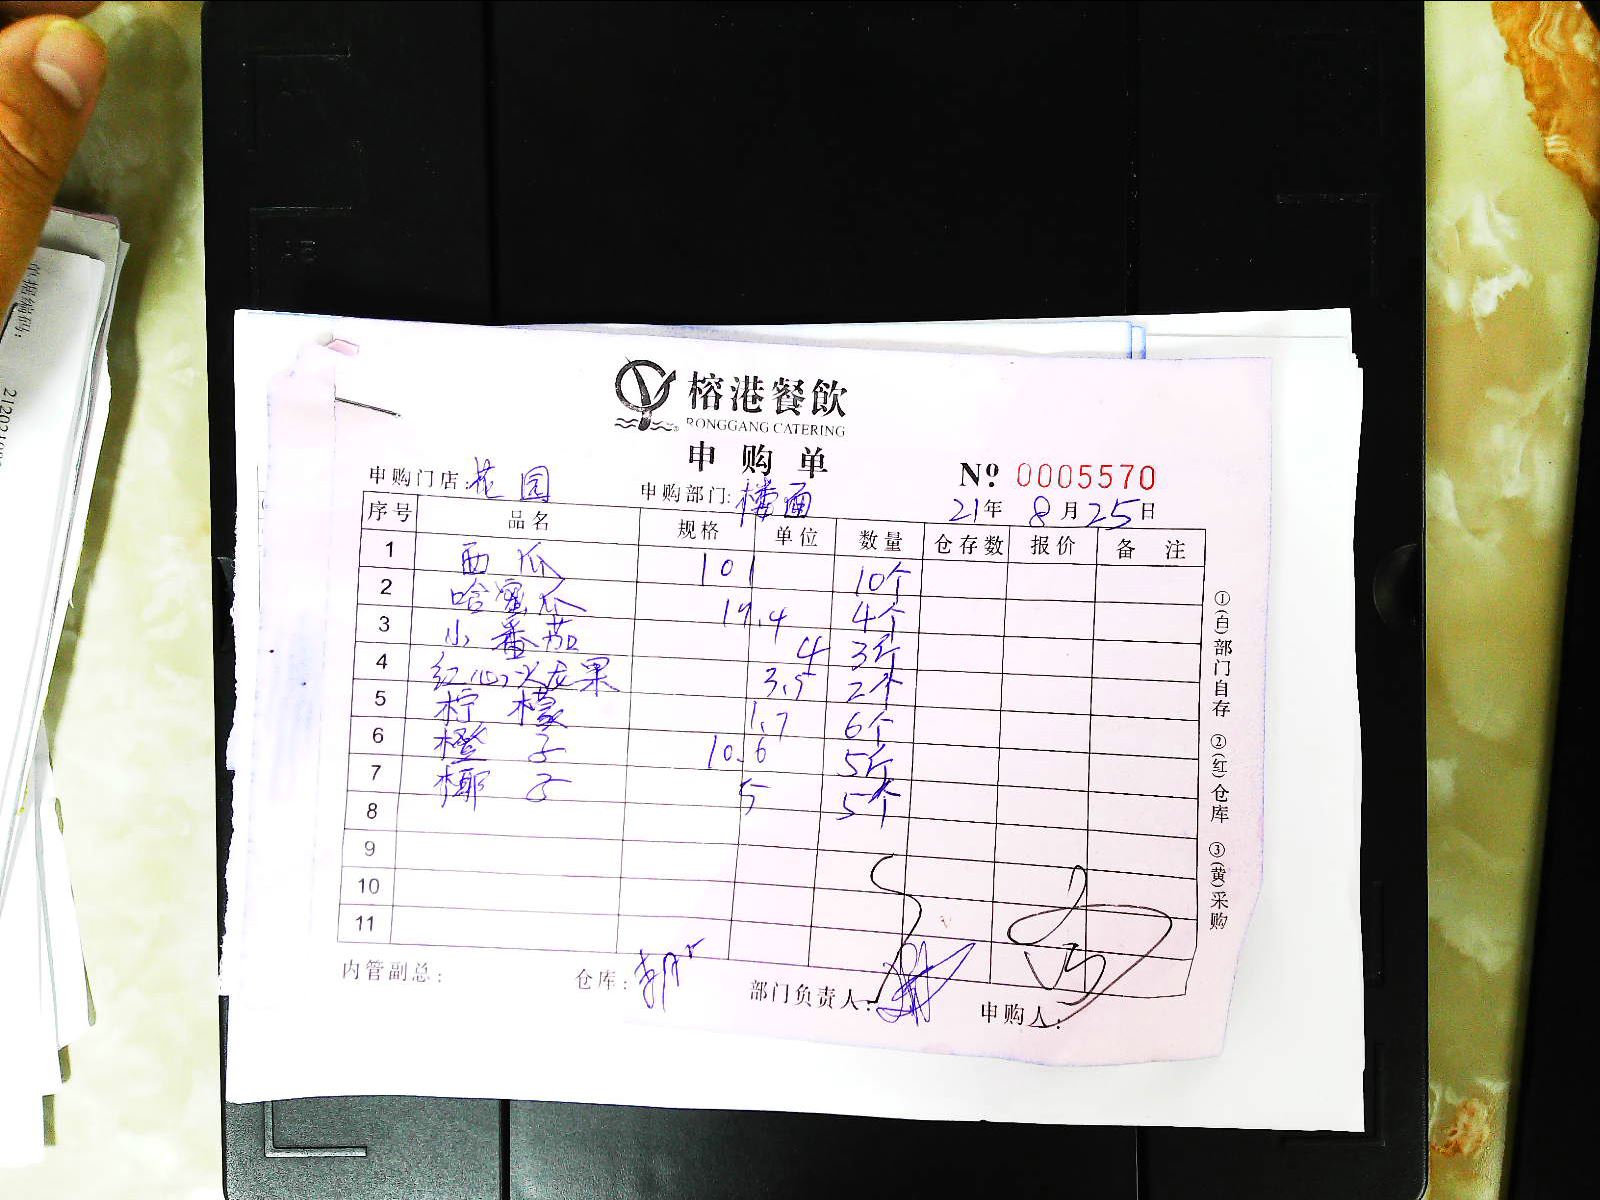 榕港餐飲
RONGGANG CATERING
申购单
№ 0005570
申购门店:花园 申购部门:楼面 21年8月25日
序号 品名 规格 单位 数量 仓存数 报价 备注
1 西瓜 101 10个
2 哈蜜瓜 17.4 4个
3 小番茄 4 3斤
4 红心火龙果 3.5 2个
5 柠檬 1.7 6个
6 橙子 10.6 5斤
7 椰子 5 5个
8
9
10
11
内管副总: 仓库: 部门负责人: 申购人:
①(白)部门自存 ②(红)仓库 ③(黄)采购
单据编码: